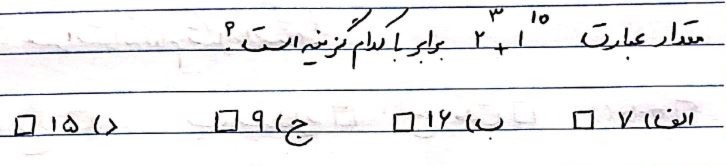 مقدار عبارت ۲^۳ + ۱^۱۵ برابر با کدام گزینه است؟
الف) ۷ □ ب) ۱۶ □ ج) ۹ □ د) ۱۵ □